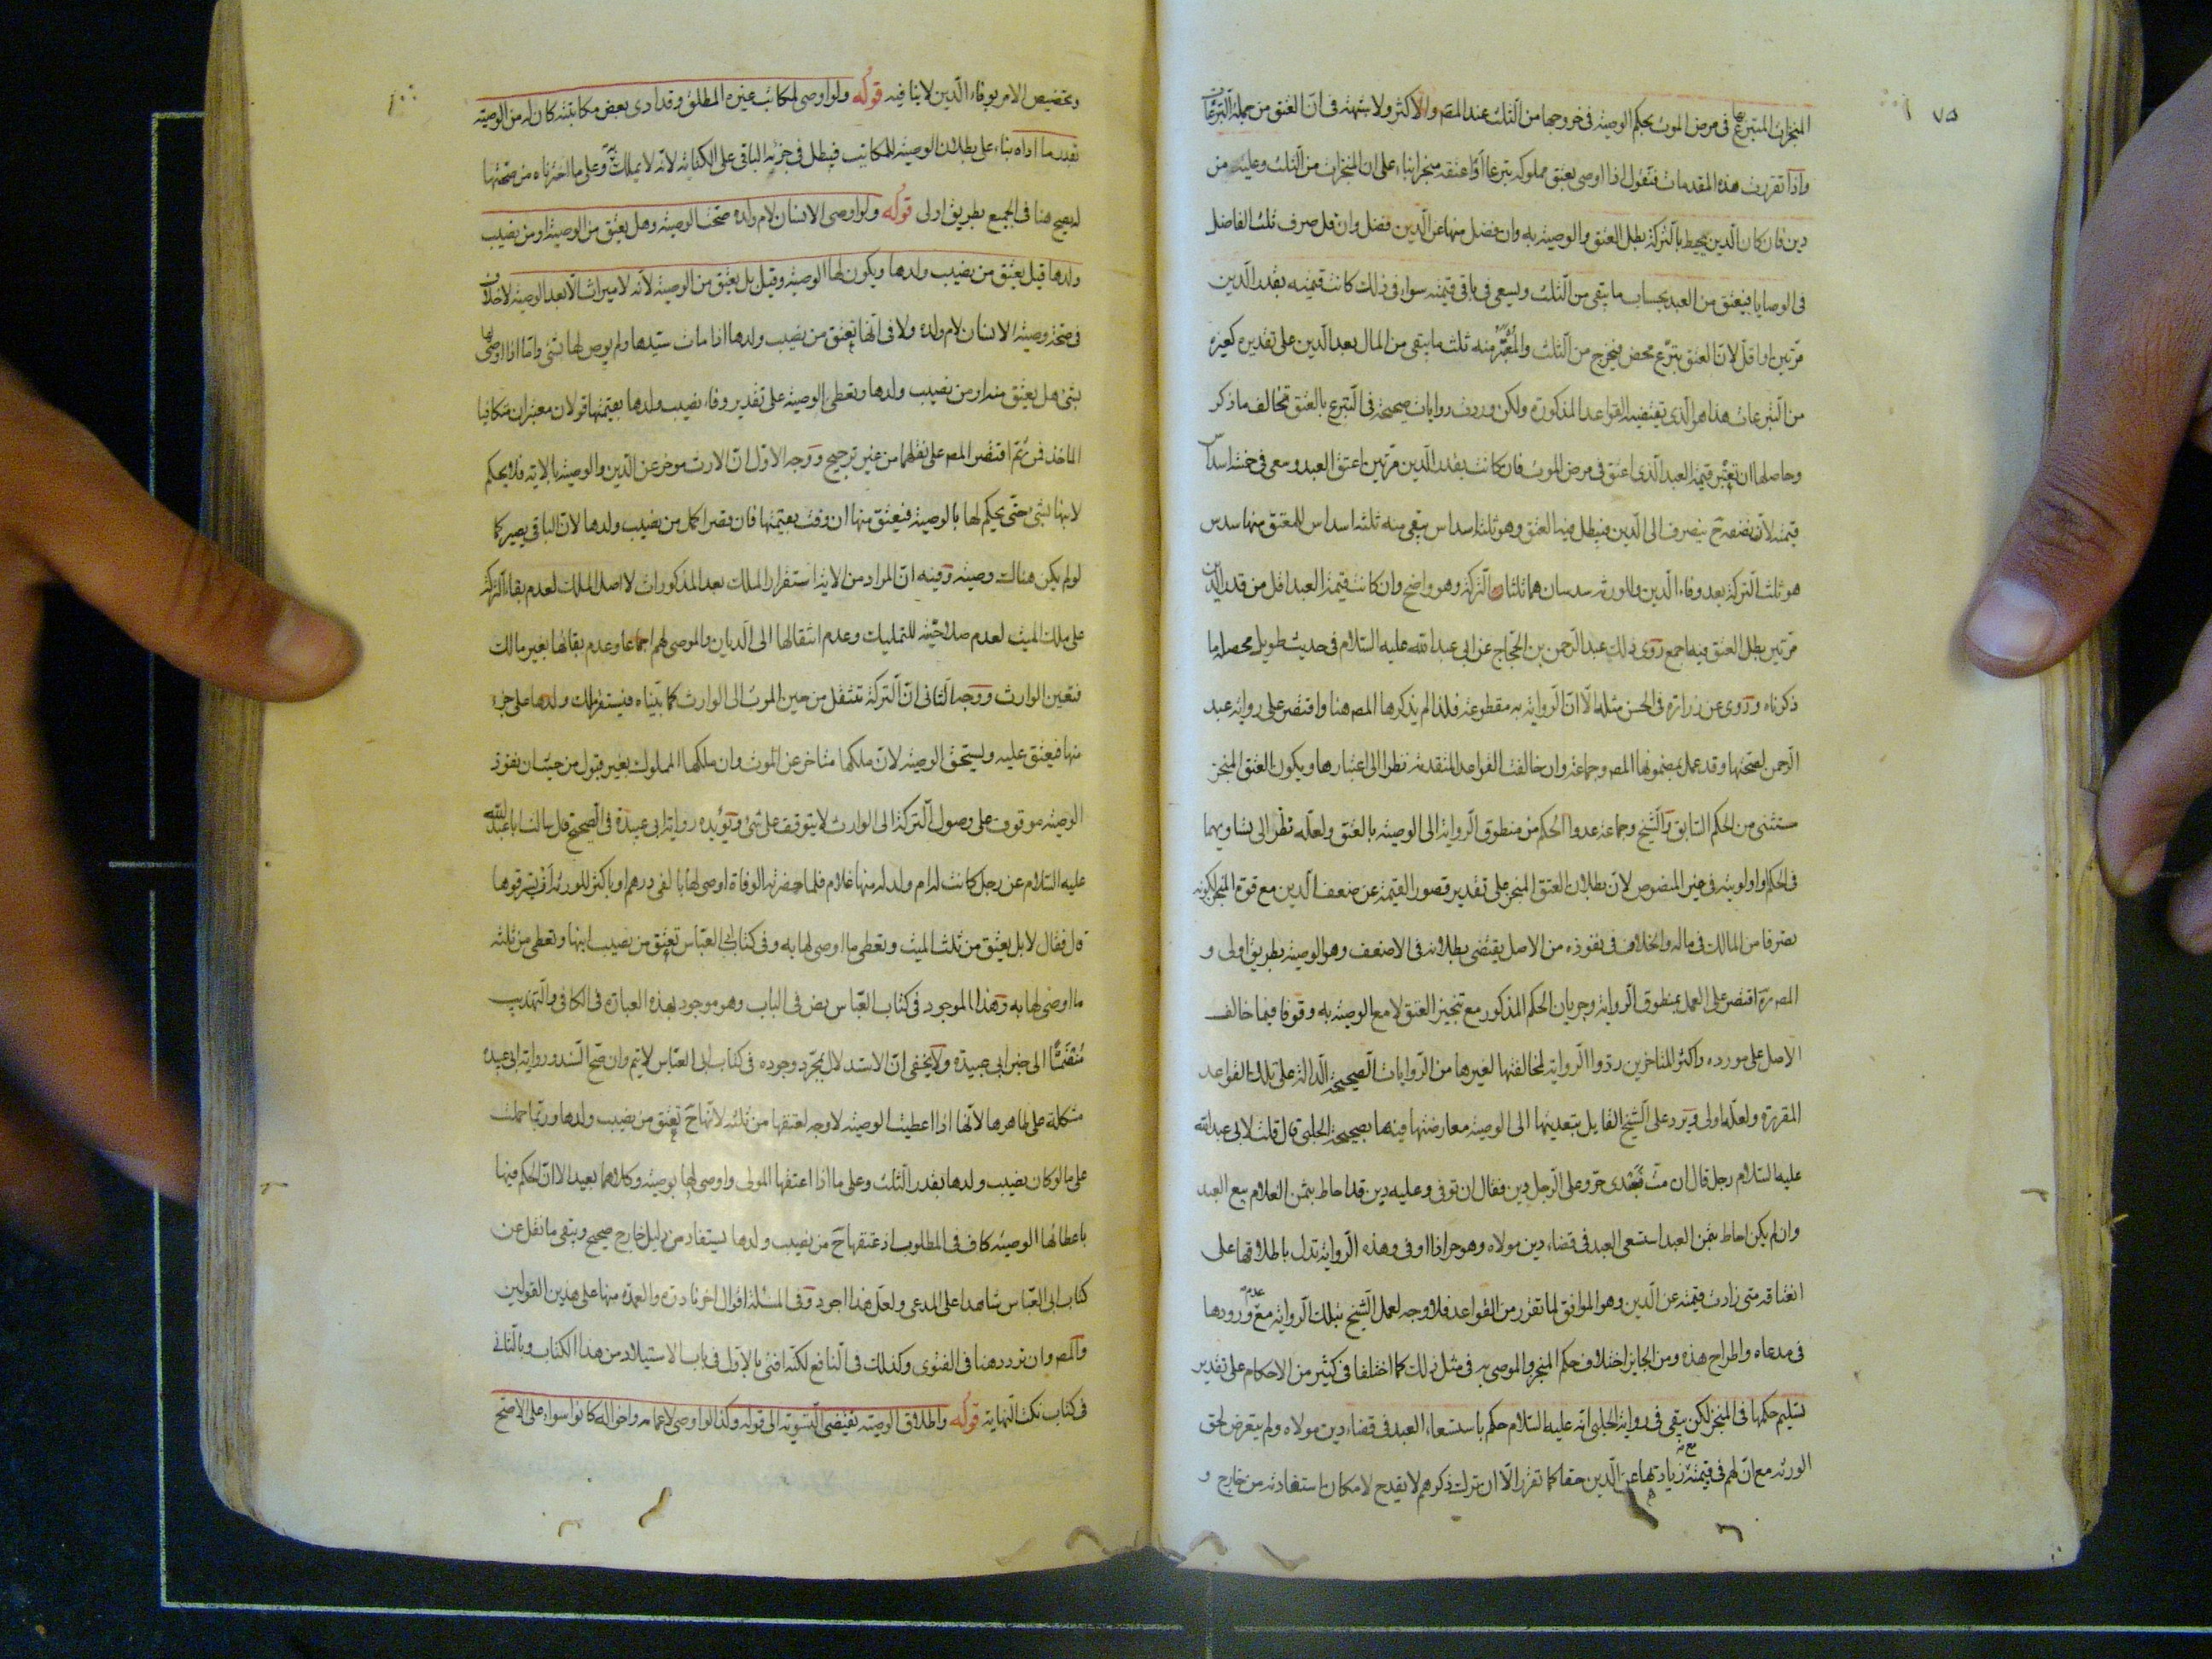 ٧٥
المنجزات المتبرع بها في مرض الموت بحكم الوصية في خروجها من الثلث عند المصـ والاكثر ولا شبهة في ان العتق من جملة التبرعات
واذا تقررت هذه المقدمات فنقول اذا اوصى بعتق مملوكه تبرعا او اعتقه منجزا بناء على ان المنجزات من الثلث وعليه من
دين فان كان الدين يحيط بالتركة بطل العتق والوصية به وان فضل منها عن الدين فضل وان قل صرف ثلث الفاضل
في الوصايا فيعتق من العبد بحساب ما يبقى من الثلث ويسعى في باقي قيمته سواء في ذلك كانت قيمته بقدر الدين
مرتين او اقل لان العتق تبرع محض فيخرج من الثلث والمعتبر منه ثلث ما يبقى من المال بعد الدين على تقديره كغيره
من التبرعات هذا هو الذي يقتضيه القواعد المذكورة ولكن وردت روايات صحيحة في التبرع بالعتق تخالف ما ذكر
وحاصلها ان تعتبر قيمة العبد الذي اعتق في مرض الموت فان كانت بقدر الدين مرتين اعتق العبد وسعى في خمسة اسداس
قيمته لان نصفه ح ينصرف الى الدين فيبطل فيه العتق وهو ثلثة اسداس يبقى منه ثلثة اسداس للمعتق منها سدس
هو ثلث التركة بعد وفاء الدين وللورثة سدسان هما ثلثا التركة وهو واضح وان كانت قيمة العبد اقل من قدر الدين
مرتين بطل العتق فيه اجمع روى ذلك عبد الرحمن بن الحجاج عن ابي عبد الله عليه السلام في حديث طويل محصله ما
ذكرناه وروى عن زرارة في الحسن مثله الا ان الرواية به مقطوعة فلذا لم يذكرها المصـ هنا واقتصر على رواية عبد
الرحمن لصحتها وقد عمل بمضمونها المصـ وجماعة وان خالفت القواعد المتقدمة نظرا الى اعتبارها ويكون العتق المنجز
مستثنى من الحكم السابق والشيخ وجماعة عدوا الحكم من منطوق الرواية الى الوصية بالعتق ولعله نظر الى تساويهما
في الحكم واولويته في غير المنصوص لان بطلان العتق المنجز على تقدير قصور القيمة عن ضعف الدين مع قوة المنجز لكونه
تصرفا من المالك في ماله والخلاف في نفوذه من الاصل يقتضي بطلانه في الاضعف وهو الوصية بطريق اولى و
المصـ ره اقتصر على العمل بمنطوق الرواية وجريان الحكم المذكور مع تنجيز العتق لا مع الوصية به وقوفا فيما خالف
الاصل على مورده واكثر المتاخرين ردوا الرواية لمخالفتها لغيرها من الروايات الصحيحة الدالة على تلك القواعد
المقررة ولعله اولى ويرد على الشيخ القايل بتعديتها الى الوصية معارضتها فيها بصحيحة الحلبي قال قلت لابي عبد الله
عليه السلام رجل قال ان مت فعبدي حر وعلى الرجل دين فقال ان توفى وعليه دين قد احاط بثمن الغلام بيع العبد
وان لم يكن احاط بثمن العبد استسعى العبد في قضاء دين مولاه وهو حر اذا اوفى وهذه الرواية تدل باطلاقها على
انعتاقه متى زادت قيمته عن الدين وهو الموافق لما تقرر من القواعد فلا وجه لعمل الشيخ بتلك الرواية مع عدم ورودها
في مدعاه واطراح هذه ومن الجايز اختلاف حكم المنجز والموصى به في مثل ذلك كما اختلفا في كثير من الاحكام على تقدير
تسليم حكمها في المنجز لكن يبقى في رواية الحلبي انه عليه السلام حكم باستسعاء العبد في قضاء دين مولاه ولم يتعرض لحق
الورثة مع ان لهم في قيمته مع زيادتها عن الدين حقا كما تقرر الا ان ترك ذكرهم لا يقدح لامكان استفادته من خارج و
وتخصيص الامر بوفاء الدين لا ينافيه قوله ولو اوصى لمكاتب غيره المطلق وقد ادى بعض مكاتبته كان له من الوصية
بقدر ما اداه بناء على بطلان الوصية للمكاتب فيبطل في جزئه الباقي على الكتابة لانه لا يملك وعلى ما اخترناه من صحتها
له يصح هنا في الجميع بطريق اولى قوله ولو اوصى الانسان لام ولده صحت الوصية وهل يعتق من الوصية او من نصيب
ولدها قيل يعتق من نصيب ولدها ويكون لها الوصية وقيل بل يعتق من الوصية لانه لا ميراث الا بعد الوصية لا خلاف
في صحة وصية الانسان لام ولده ولا في انها تعتق من نصيب ولدها اذا مات سيدها ولم يوص لها بشئ واما اذا اوصى لها
بشئ هل يعتق منه او من نصيب ولدها وتعطى الوصية على تقدير وفاء نصيب ولدها بقيمتها قولان معتبران متكافيا
الماخذ فمن ثم اقتصر المصـ على نقلهما من غير ترجيح ووجه الاول ان الارث موخر عن الدين والوصية بالاية فلا يحكم
لابنها بشئ حتى يحكم لها بالوصية فيعتق منها ان وفت بقيمتها فان قصر اكمل من نصيب ولدها لان الباقي يصير كما
لو لم يكن هناك وصية وفيه ان المراد من الاية استقرار الملك بعد المذكورات لا اصل الملك لعدم بقاء التركة
على ملك الميت لعدم صلاحيته للتمليك وعدم انتقالها الى الديان والموصى لهم اجماعا وعدم بقائها بغير مالك
فتعين الوارث ووجه الثاني ان التركة تنتقل من حين الموت الى الوارث كما بيناه فيستقر ملك ولدها على جزء
منها فيعتق عليه ويستحق الوصية لان ملكها متاخر عن الموت وان ملكها المملوك بغير قبول من حيث ان نفوذ
الوصية موقوف على وصول التركة الى الوارث لا يتوقف على شئ ويؤيده رواية ابي عبيدة في الصحيح قال سالت ابا عبد الله
عليه السلام عن رجل كانت له ام ولد له منها غلام فلما حضرته الوفاة اوصى لها بالفي درهم او باكثر للورثة ان يسترقوها
قال فقال لا بل يعتق من ثلث الميت وتعطى ما اوصى لها به وفي كتاب ابي العباس تعتق من نصيب ابنها وتعطى من ثلثه
ما اوصى لها به وهذا الموجود في كتاب العباس نص في الباب وهو موجود بهذه العبارة في الكافي والتهذيب
الى خبر ابي عبيدة ولا يخفى ان الاستدلال بمجرد وجوده في كتاب ابي العباس لا يتم وان صح السند ورواية ابي عبيدة
مشكلة على ظاهرها لانها اذا اعطيت الوصية لا وجه لعتقها من ثلثه لانها ح تعتق من نصيب ولدها وربما حملت
على ما لو كان نصيب ولدها بقدر الثلث وعلى ما اذا اعتقها المولى واوصى لها بوصية وكلاهما بعيد الا ان الحكم فيها
باعطائها الوصية كاف في المطلوب اذ عتقها ح من نصيب ولدها يستفاد من دليل خارج صحيح ويبقى ما نقل عن
كتاب ابي العباس شاهدا على المدعى ولعل هذا اجود وفي المسئلة اقوال اخر نادرة والعمدة منها على هذين القولين
والمصـ وان تردد هنا في الفتوى وكذلك في النافع لكنه افتى بالاول في باب الاستيلاد من هذا الكتاب وبالثاني
في كتاب نكت النهاية قوله واطلاق الوصية تقتضي التسوية الى قوله وكذا لو اوصى لاعمامه واخواله كانوا سواء على الاصح